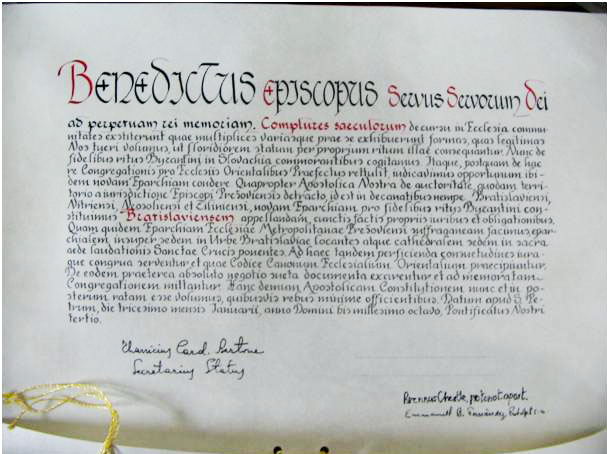 Benedictus Episcopus Servus Servorum Dei
ad perpetuam rei memoriam. Complures saeculorum decursu in Ecclesia commu-
nitates exstiterunt quae multiplices variasque prae se exhibuerunt formas, quas legitimas
Nos tueri volumus, ut floridiorem statum per proprium ritum illae consequantur. Nunc de
fidelibus ritus Byzantini in Slovachia commorantibus cogitamus. Itaque, postquam de hac
re Congregationis pro Ecclesiis Orientalibus Praefectus rettulit, iudicavimus opportunum ibi-
dem novam Eparchiam condere. Quapropter Apostolica Nostra de auctoritate, quodam terri-
torio a iurisdictione Episcopi Prešoviensis detracto, id est in decanatibus nempe Bratislaviensi,
Nitriensi, et Zilinensi, novam Eparchiam pro fidelibus ritus Byzantini con-
stituimus Bratislaviensem appellandam, cunctis factis propriis iuribus et obligationibus.
Quam quidem Eparchiam Ecclesiae Metropolitanae Prešoviensi suffraganeam facimus, epar-
chialem insuper sedem in Urbe Bratislaviae locantes atque cathedralem sedem in sacra
aede laudationis Sanctae Crucis ponentes. Ad haec tandem perficienda consuetudines iura-
que congrua serventur et quae Codice Canonum Ecclesiarum Orientalium praecipiuntur.
De eodem praeterea absoluto negotio sueta documenta exarentur et ad memoratam
Congregationem mittantur. Hanc demum Apostolicam Constitutionem nunc et in po-
sterum ratam esse volumus, quibusvis rebus minime officientibus. Datum apud S. Pe-
trum, die tricesimo mensis Ianuarii, anno Domini bis millesimo octavo, Pontificatus Nostri
tertio.
Tharcisius Card. Bertone
Secretarius Status
protonot. apost.
Emmanuel